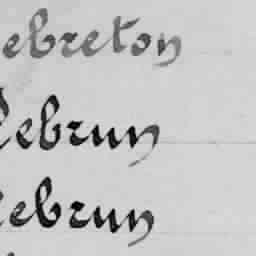 ebreton
Lebrun
Lebrun